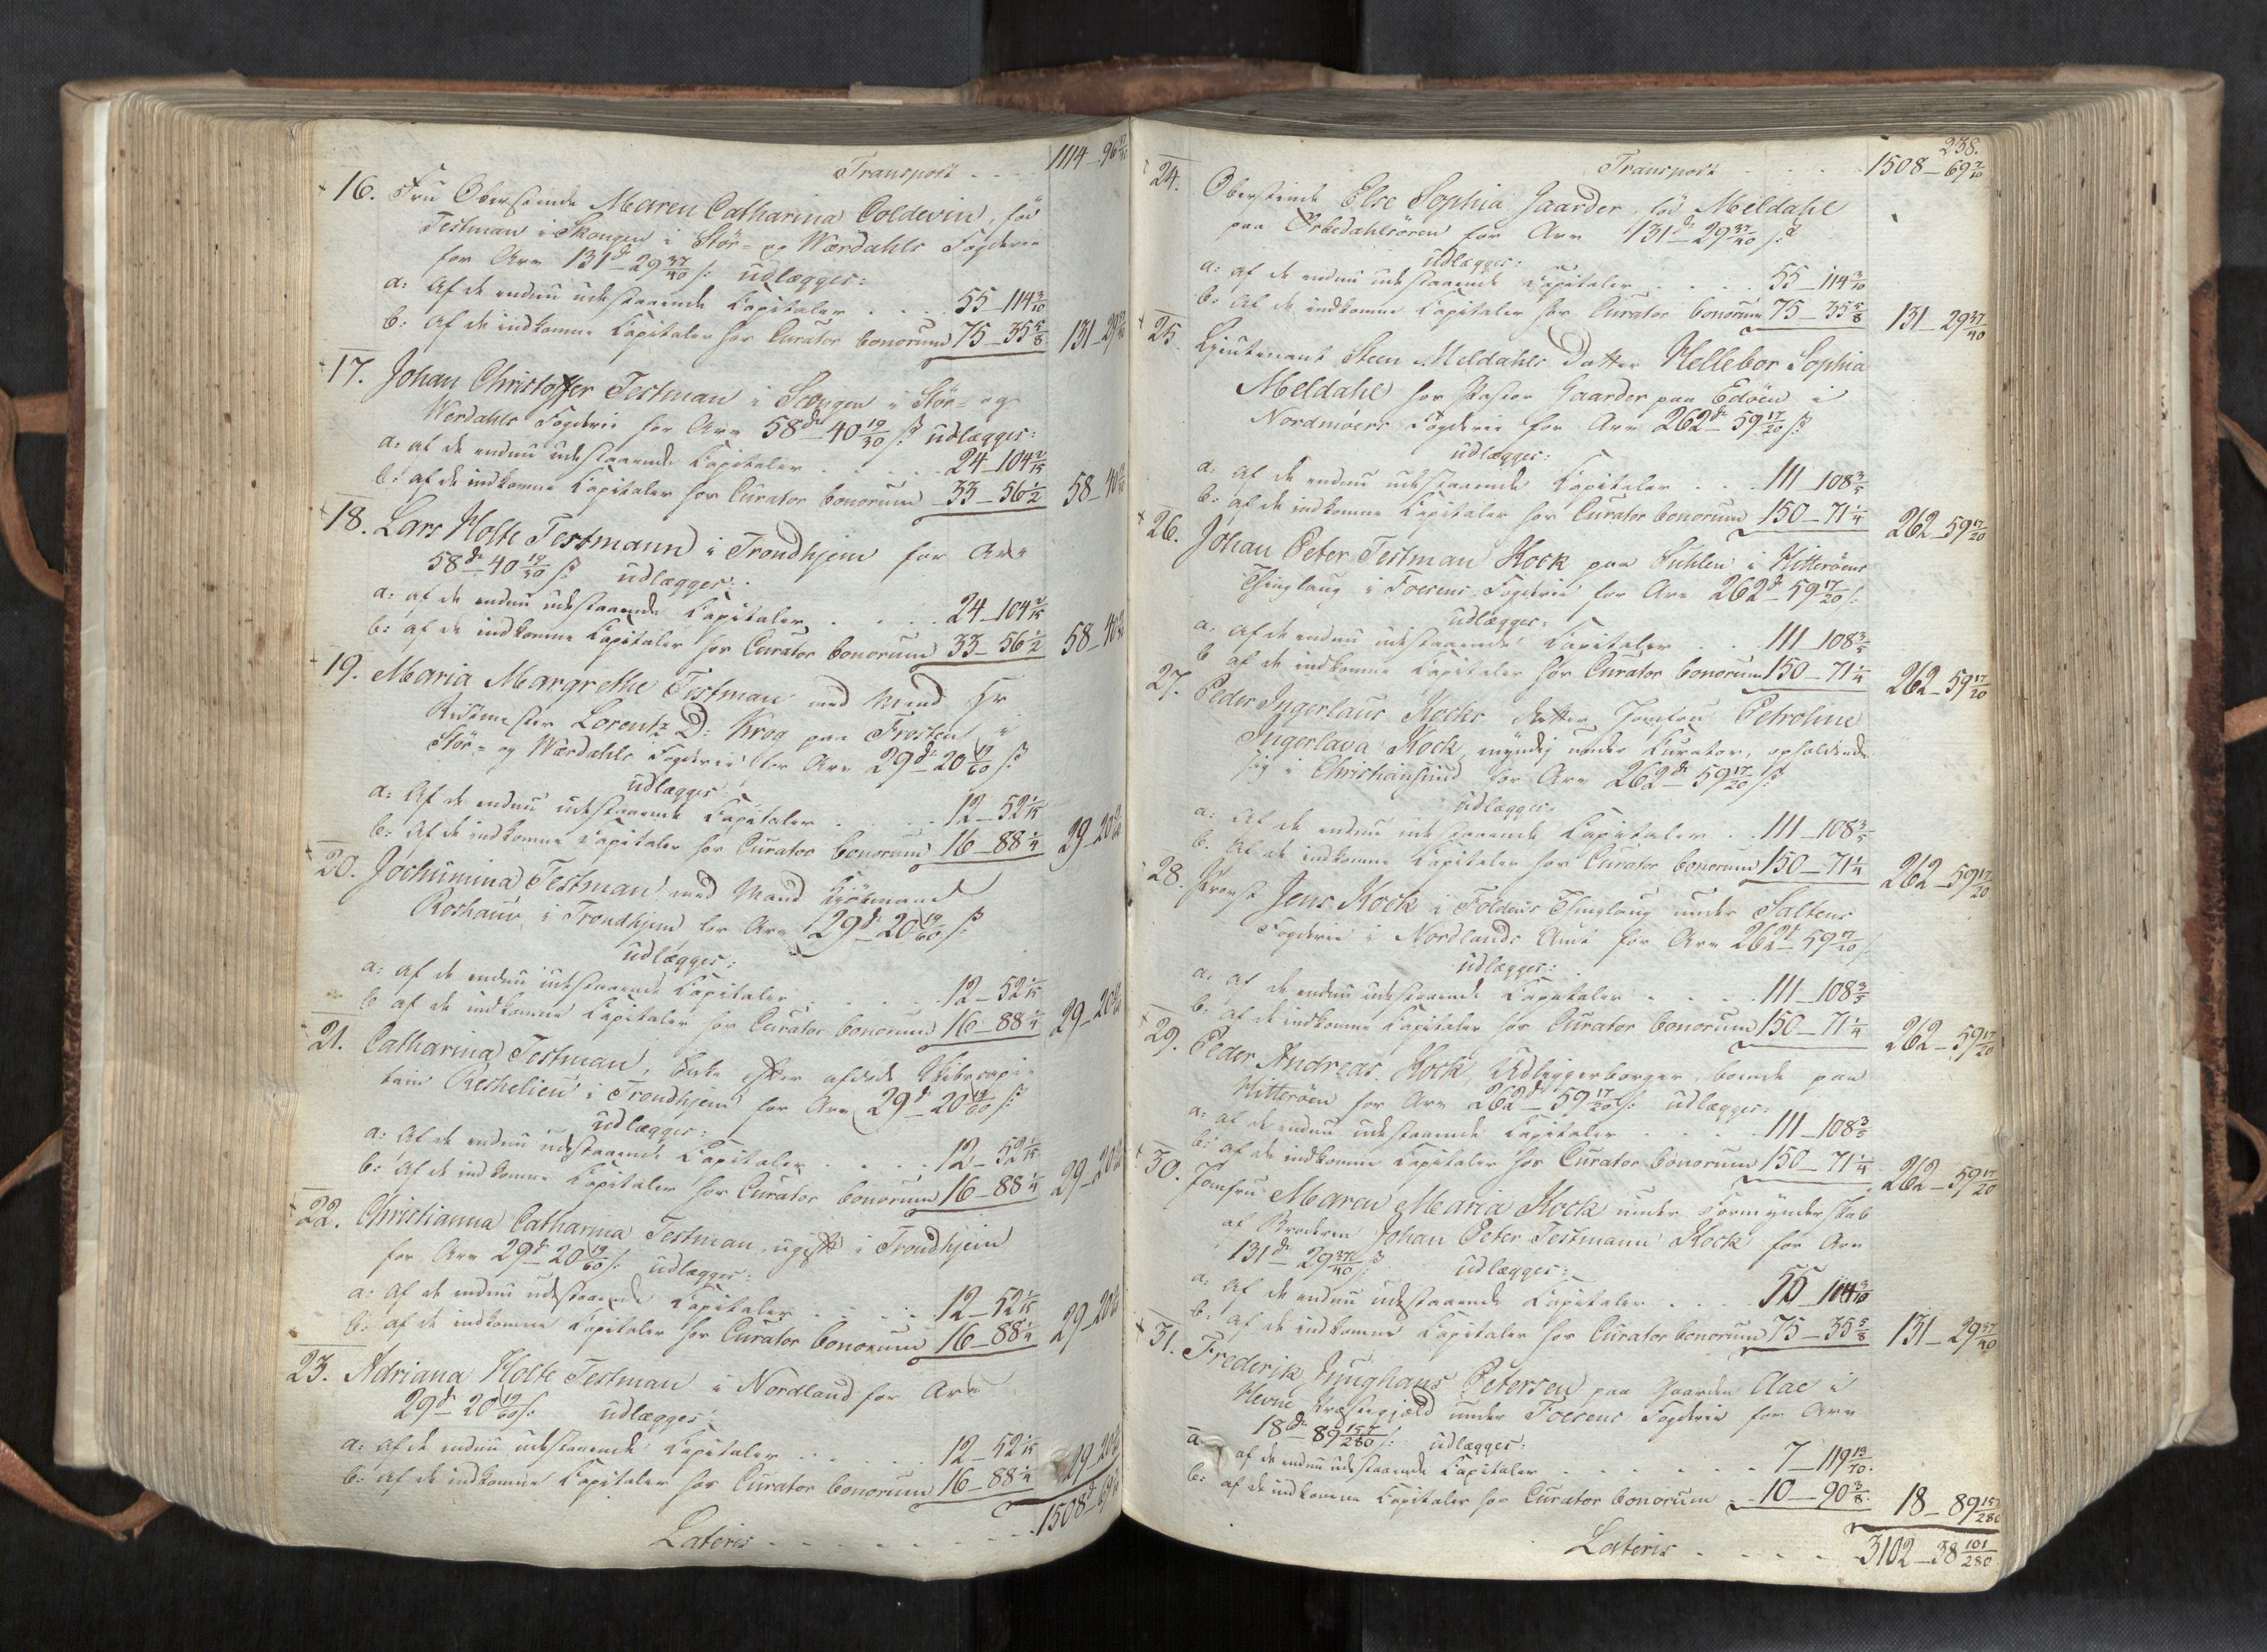 Transport . . . 1114 – 96
16. Fru Oberstinde Maren Catharina Coldevin, föd
Testman i Skongen i Stör- og Værdahls Fogderie
for Arv 131d – 29 37/40 s: udlægges:
a: Af de endnu udestaaende Capitaler . . . . 55 – 114 3/10
b: Af de indkomne Capitaler hos Curator bonorum 75 – 35 5/8 131 – 29 37/40
17. Johan Christoffer Testman i Scongen i Stör- og
Værdahls Fogderie for Arv 58d – 40 19/30 s: udlægges:
a: af de endnu udestaaende Capitaler . . . . . 24 – 104 2/15
b: af de indkomne Capitaler hos Curator bonorum 33 – 56 1/2 58 – 40
18. Lars Holte Testmann i Trondhjem for Arv
58d – 40 19/30 s: udlægges:
a: af de endnu udestaaende Capitaler . . . . 24 – 104 2/15
b: af de indkomne Capitaler hos Curator bonorum 33 – 56 1/2 58 – 40
19. Maria Margrethe Testman med Mand Hr
Ridtmester Lorentz D: Krog paa Frosten i
Stör- og Værdahls Fogderie for Arv 29d – 20 19/60 s:
udlægges
a: Af de endnu udestaaende Capitaler . . . . 12 – 52 1/15
b: Af de indkomne Capitaler hos Curator bonorum 16 – 88 1/4 29 – 20
20. Jochumina Testman med Mand Kjöbmand
Roshauw i Trondhjem for Arv 29d – 20 19/60 s:
udlægges:
a: af de endnu udestaaende Capitaler . . . . . 12 – 52 1/15
b af de indkomne Capitaler hos Curator bonorum 16 – 88 1/4 29 – 20
21. Catharina Testman, Enke efter afdöde Skibscapi-
tain Reshelieu i Trondhjem for Arv 29d – 20 19/60 s:
udlægges:
a: Af de endnu udestaaende Capitaler . . . . 12 – 52 1/15
b: Af de indkomne Capitaler hos Curator bonorum 16 – 88 1/4 29 – 20
22. Christianna Catharina Testman, ugift i Trondhjem
for Arv 29d – 20 19/60 s: udlægges:
a: Af de endnu udestaaende Capitaler . . . . 12 – 52 1/15
b: af de indkomne Capitaler hos Curator bonorum 16 – 88 1/4 29 – 20
23. Adriana Holte Testman i Nordland for Arv
29d – 20 19/60 s: udlægges
a: af de endnu udestaaende Capitaler . . . . . 12 – 52 1/15
b: af de indkomne Capitaler hos Curator bonorum 16 – 88 1/4 29 – 20
Lateris . . . . . . . . 1508d – 69
238.
Transport . . . . 1508 – 69 7/10
24. Oberstinde Else Sophia Gaarder, föd Meldahl
paa Örkedahlsören for Arv 131d – 29 37/40 s:
udlægges:
a: af de endnu udestaaende Capitaler . . . . 55 – 114 3/10
b: Af de indkomne Capitaler hos Curator bonorum 75 – 35 5/8 131 – 29 37/40
25. Lieutenant Steen Meldahls Datter Hellebor Sophia
Meldahl hos Pastor Gaarder paa Edöen i
Nordmöers Fogderie for Arv 262d – 59 17/20 s:
udlægges:
a: af de endnu udestaaende Capitaler . . . 111 – 108 3/5
b: af de indkomne Capitaler hos Curator bonorum 150 – 71 1/4 262 – 59 17/20
26. Johan Peter Testman Kock paa Kuhlen i Hitteröens
Thinglaug i Foesens Fogderie for Arv 262d – 59 17/20 s:
udlægges:
a: af de endnu udestaaende Capitaler . . . 111 – 108 3/5
b af de indkomne Capitaler hos Curator bonorum 150 – 71 1/4 262 – 59 17/20
27. Peder Ingerlaus Kocks Datter Jomfru Petroline
Ingerlava Kock, myndig under Curator, opholdende
sig i Christiansund for Arv 262d – 59 17/20 s:
udlægges:
a: Af de endnu udestaaende Capitaler . . 111 – 108 3/5
b. Af de indkomne Capitaler hos Curator bonorum 150 – 71 1/4 262 – 59 17/20
28. Provst Jens Kock i Foldens Thinglaug under Saltens
Fogderie i Nordlands Amt for Arv 262d – 59 17/20 s:
udlægges:
a: af de endnu udestaaende Capitaler . . . . 111 – 108 3/5
b: af de indkomne Capitaler hos Curator bonorum 150 – 71 1/4 262 – 59 17/20
29. Peder Andreas Kock, Udliggerborger, boende paa
Hitteröen for Arv 262d – 59 17/20 s: udlægges:
a: af de endnu udestaaende Capitaler . . . . 111 – 108 3/5
b: af de indkomne Capitaler hos Curator bonorum 150 – 71 1/4 262 – 59 17/20
30. Jomfru Maren Maria Kock under Formynderskab
af Broderen Johan Peter Testmann Kock for Arv
131d – 29 37/40 s: udlægges:
a: af de endnu udestaaende Capitaler . . . . 55 – 114 3/10
b: af de indkomne Capitaler hos Curator bonorum 75 – 35 5/8 131 – 29 37/40
31. Frederik Junghans Petersen paa Gaarden Aae i
Hevne Præstegjæld under Foesens Fogderie for Arv
18d – 89 157/280 s: udlægges:
a: af de endnu udestaaende Capitaler . . . . . . 7 – 119 13/70.
b: af de indkomne Capitaler hos Curator bonorum 10 – 90 3/8. 18 – 89 157/280
Lateris . . . . . 3102 – 38 101/280